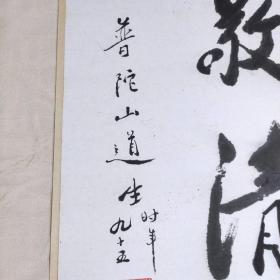 敬清
普陀山道生时年九十五